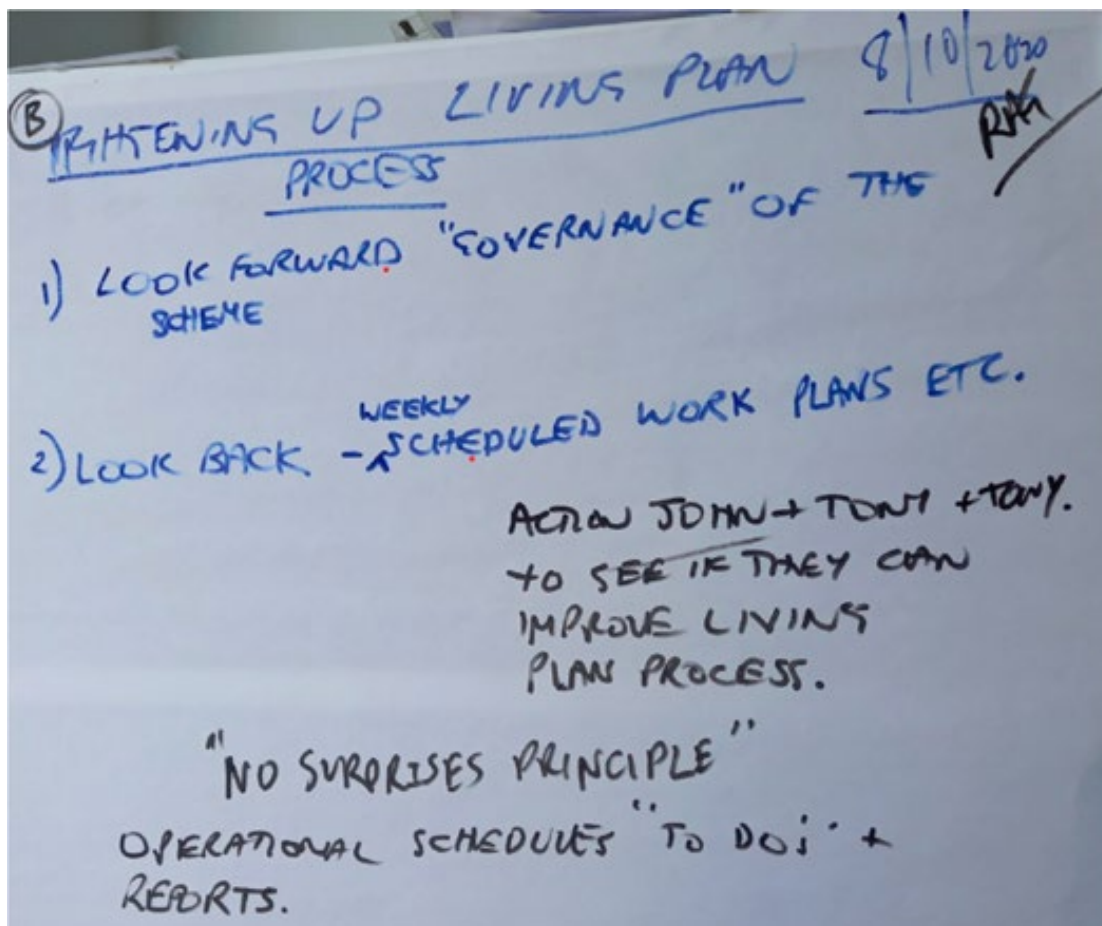 B
TIGHTENING UP LIVING PLAN 8/10/2020
PROCESS
1) LOOK FORWARD "GOVERNANCE" OF THE
SCHEME
WEEKLY
2) LOOK BACK - SCHEDULED WORK PLANS ETC.
ACTION JOHN + TONY + TONY.
TO SEE IF THEY CAN
IMPROVE LIVING
PLAN PROCESS.
"NO SURPRISES PRINCIPLE"
OPERATIONAL SCHEDULES "TO DO" +
REPORTS.